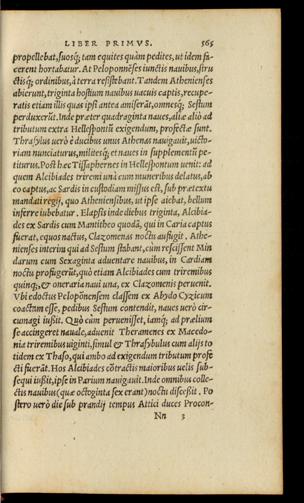 LIBER PRIMVS. 565
propellebat, suosq́; tam equites quàm pedites, ut idem fa-
cerent hortabatur. At Peloponnēses iunctis nauibus, stru
ctisq́; ordinibus, à terra resistebant. Tandem Athenienses
abierunt, triginta hostium nauibus uacuis captis, recupe-
ratis etiam illis quas ipsi antea amiserāt, omnesq́; Sestum
perduxerūt. Inde præter quadraginta naues, aliæ aliò ad
tributum extra Hellespontū exigendum, profectæ sunt.
Thrasylus uerò è ducibus unus Athenas nauigauit, uicto-
riam nunciaturus, militesq́; et naues in supplementū pe-
titurus. Post hæc Tissaphernes in Hellespontum uenit: ad
quem Alcibiades triremi unà cum muneribus delatus, ab
eo captus, ac Sardis in custodiam missus est, sub prætextu
mandati regij, quo Atheniensibus, ut ipse aiebat, bellum
inferre iubebatur. Elapsis inde diebus triginta, Alcibia-
des ex Sardis cum Mantitheo quodā, qui in Caria captus
fuerat, equos nactus, Clazomenas noctu aufugit. Athe-
nienses interim qui ad Sestum stabant, cùm resciissent Min
darum cum Sexaginta aduentare nauibus, in Cardiam
noctu profugerūt, quò etiam Alcibiades cum triremibus
quinq́;, & oneraria naui una, ex Clazomenis peruenit.
Vbi edoctus Peloponēnsem classem ex Abydo Cyzicum
coactam esse, pedibus Sestum contendit, naues uerò cir-
cunagi iußit. Quò cùm peruenisset, iamq́; ad prælium
se accingeret nauale, aduenit Theramenes ex Macedo-
nia triremibus uiginti. simul & Thrasybulus cum alijs to
tidem ex Thaso, qui ambo ad exigendum tributum profe
cti fuerāt. Hos Alcibiades cōtractis maioribus uelis sub-
sequi iußit, ipse in Parium nauigauit. Inde omnibus colle-
ctis nauibus (quæ octoginta sex erant) noctu discessit. Po
stero uerò die sub prandij tempus Attici duces Procon-
Nn 3